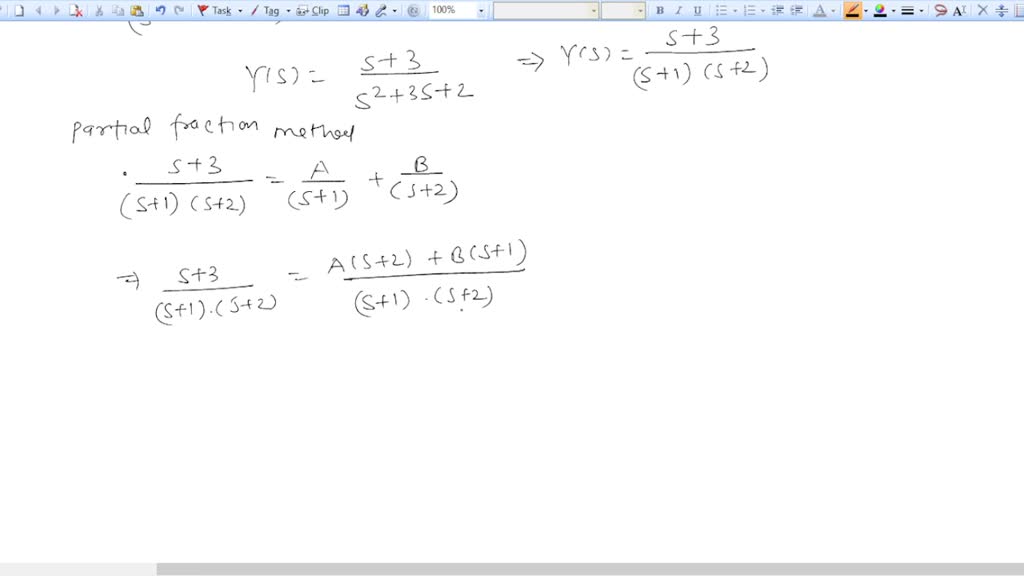 Task Tag Clip 100% B I U
Y(s) = s+3 / s²+3s+2 ⇒ Y(s) = s+3 / (s+1) (s+2)
partial fraction method
s+3 / (s+1) (s+2) = A / (s+1) + B / (s+2)
⇒ s+3 / (s+1).(s+2) = A(s+2) + B(s+1) / (s+1) .(s+2)